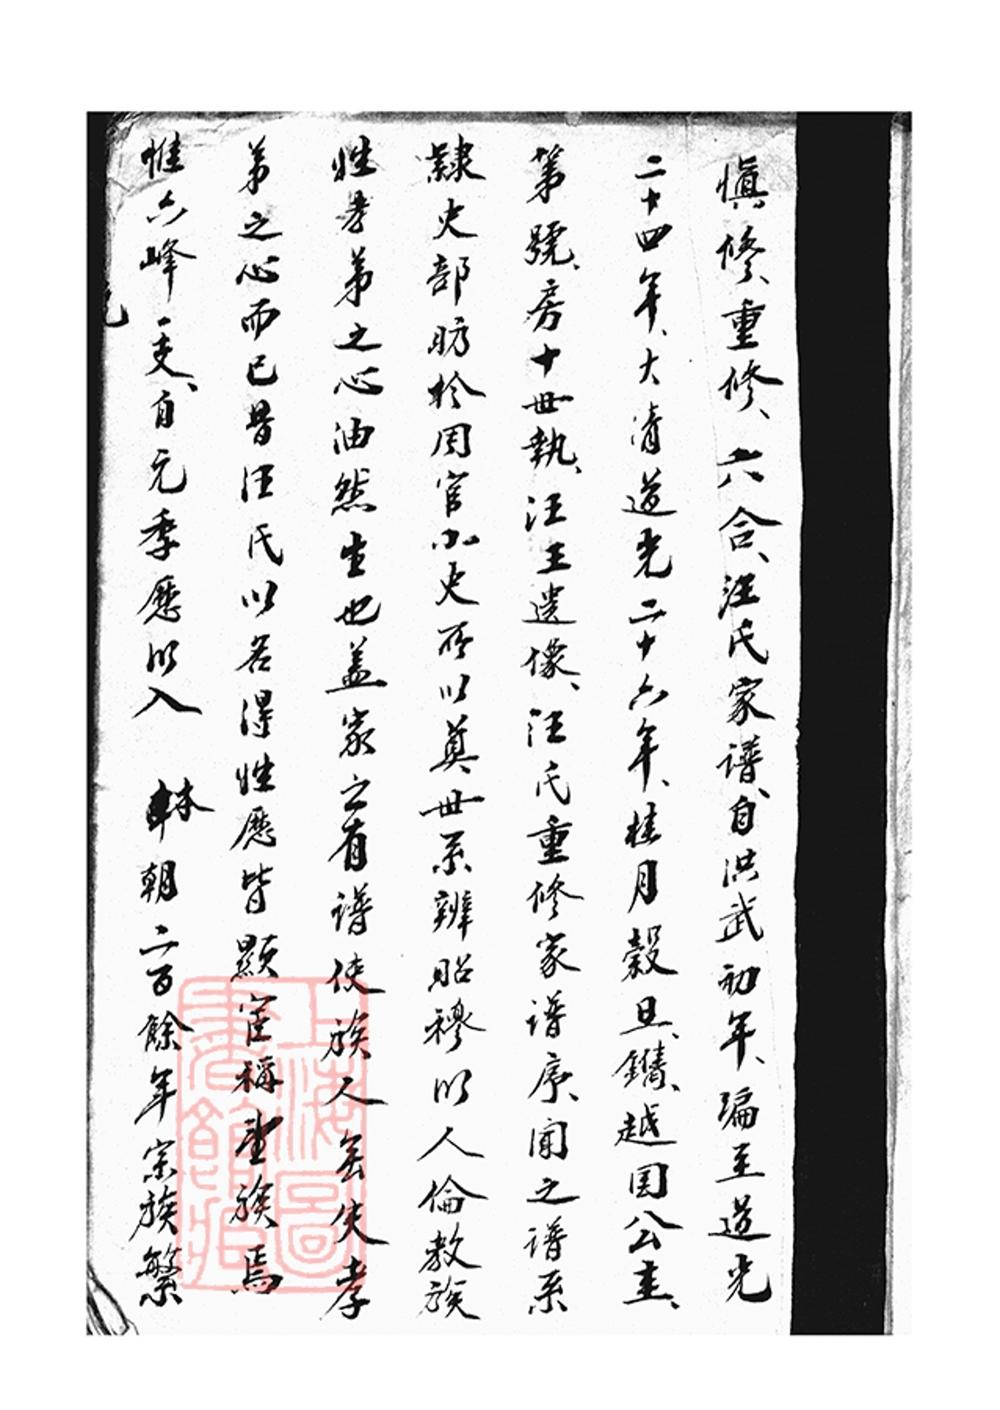 慎修、重修、六合、汪氏家譜、自洪武初年、編至道光
二十四年、大清道光二十六年、桂月穀旦、鐫、越国公圭、
第號、房十世執、汪王遺像、汪氏重修家譜序、聞之譜系
隸史部昉於周官小史所以奠世系辨昭穆以人倫教族
姓孝弟之心油然生也盖家之有譜使族人無失孝
弟之心而已昔汪氏以名得姓歷皆顯宦稱望族焉
惟六峰一支、自元季歷以入 本朝二百餘年宗族繁
上海圖書館藏